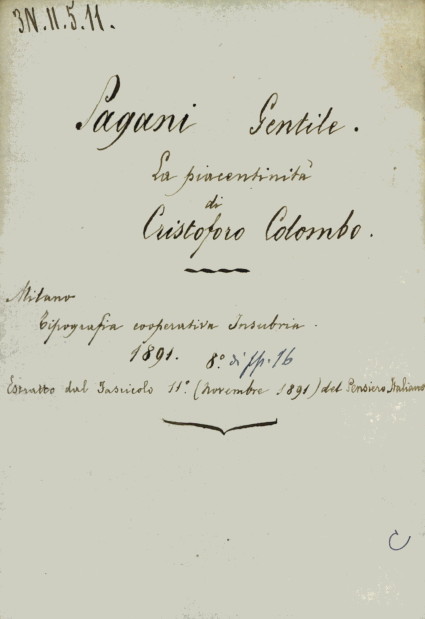 3N.II.5.11.
Pagani Gentile.
La piacentinità
di
Cristoforo Colombo.
Milano
Tipografia cooperativa Insubria.
1891. 8º. di pp. 16
Estratto dal Fascicolo 11º. (Novembre 1891) del Pensiero Italiano
C